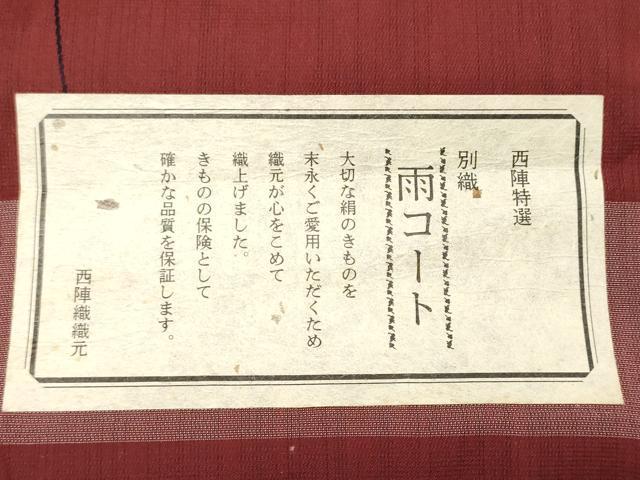 西陣特選
別織
雨コート
大切な絹のきものを
末永くご愛用いただくため
織元が心をこめて
織上げました。
きものの保険として
確かな品質を保証します。
西陣織織元